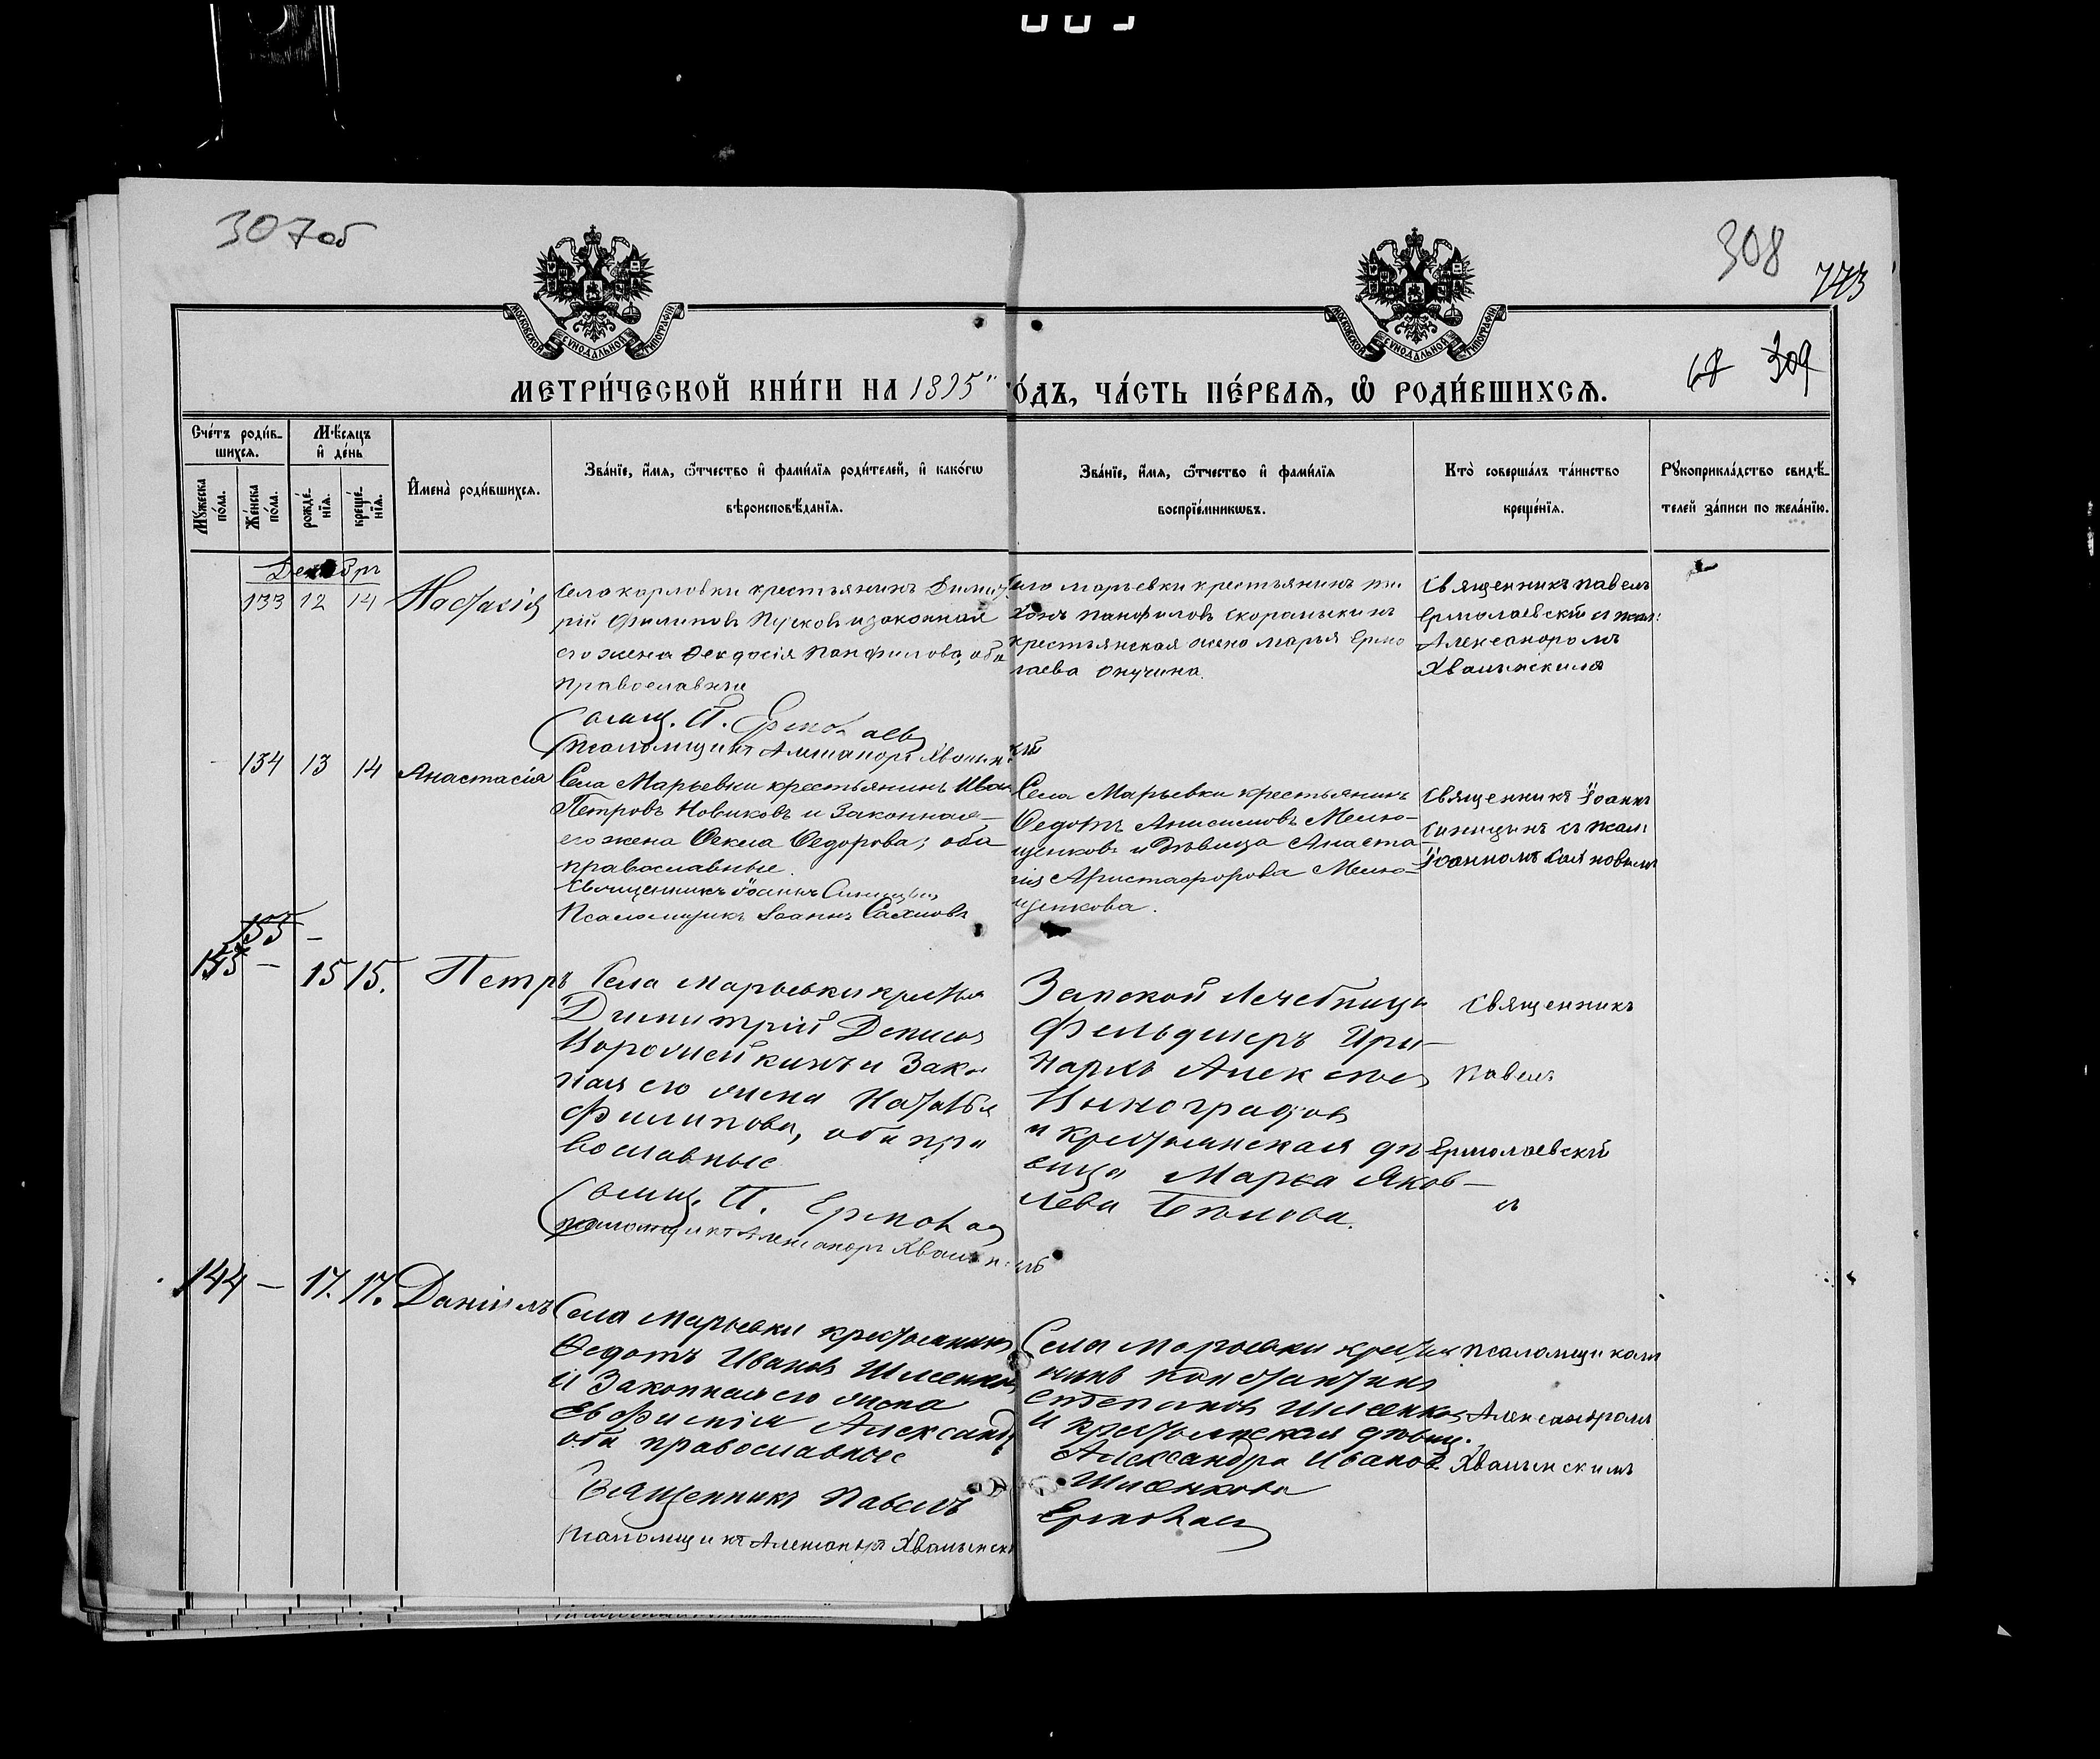 307 об
308
773
68 309
МОСКОВСКОЙ СѴНОДАЛЬНОЙ ТИПОГРАФІИ
МОСКОВСКОЙ СѴНОДАЛЬНОЙ ТИПОГРАФІИ
МЕТРИ́ЧЕСКОЙ КНИ́ГИ НА 1895 ГО́ДЪ, ЧА́СТЬ ПЕ́РВАѦ, Ѡ҆ РОДИ́ВШИХСѦ.
Сче́тъ роди́вшихсѧ.
Мꙋ́жеска по́ла.
Же́нска по́ла.
Мѣ́сѧцъ и҆ де́нь
рожде́нїѧ.
креще́нїѧ.
И҆мена̀ роди́вшихсѧ.
Зва́нїе, и҆́мѧ, ѻ҆́тчество и҆ фами́лїѧ роди́телей, и҆ како́гѡ
вѣроисповѣ́данїѧ.
Зва́нїе, и҆́мѧ, ѻ҆́тчество и҆ фами́лїѧ
воспрїе́мникѡвъ.
Кто̀ соверша́лъ та́инство
креще́нїѧ.
Рꙋкоприкла́дство свидѣ́телей за́писи по жела́нїю.
Декабрь
133 12 14
Настасія
Села карловки крестьянинъ Димит
рій Филиповъ Пусковъ и законная
его жена Ѳеодосія Панфилова, оба
православные
Свящ. П. Ермолаев
Псаломщикъ Александръ Хвалын
скій
Села марьевки крестьянинъ ти
хонъ Панфиловъ Скорамыкинъ
крестьянская жена марья Ермо
лаева Онучина.
Священникъ павелъ
Ермолаевскій съ псал:
Александромъ
Хвалынскимъ
134 13 14
Анастасія
Села Марьевки крестьянинъ Иван
Петровъ Новиковъ и Законная
его жена Ѳекла Ѳедорова; оба
православные.
Священникъ Іоаннъ Синицынъ
Псаломщикъ Іоаннъ
Села Марьевки крестьянинъ
Ѳедотъ Анисимовъ Мелю-
щенковъ и Дѣвица Анаста
сія Христофорова Мелю-
щенкова.
Священникъ Іоаннъ
Синицынъ съ псал:
Іоанномъ
155 —
143 — 15 15.
Петръ
Села Марьевки крестья
Димитрій Денисов
и Закон
ная его жена Наталья
Филипова, оба пра
вославные
Свящ. П. Ермолаев
псаломщикъ Александръ Хвалын
скъ
Земской Лечебницы
Фельдшеръ Ири-
нархъ Алексѣев
Виноградов
и крестьянская дѣ
вица Марѳа Яков-
лева Бѣлова.
Священникъ
Павелъ
Ермолаевскій
съ
144 — 17. 17.
Даніилъ
Села Марьевки крестьянинъ
Ѳедотъ Иванов Шленков
и Законная его жена
Евфимія Александр
оба православные
Священникъ Павелъ
псаломщикъ Александръ Хвалынск
Села Марьевки крестья
нинъ Константинъ
Степанов Шленков
и крестьянская дѣвиц.
Александра Иванов
Шленкова
Ермолаев
псаломщикомъ
Александромъ
Хвалынскимъ